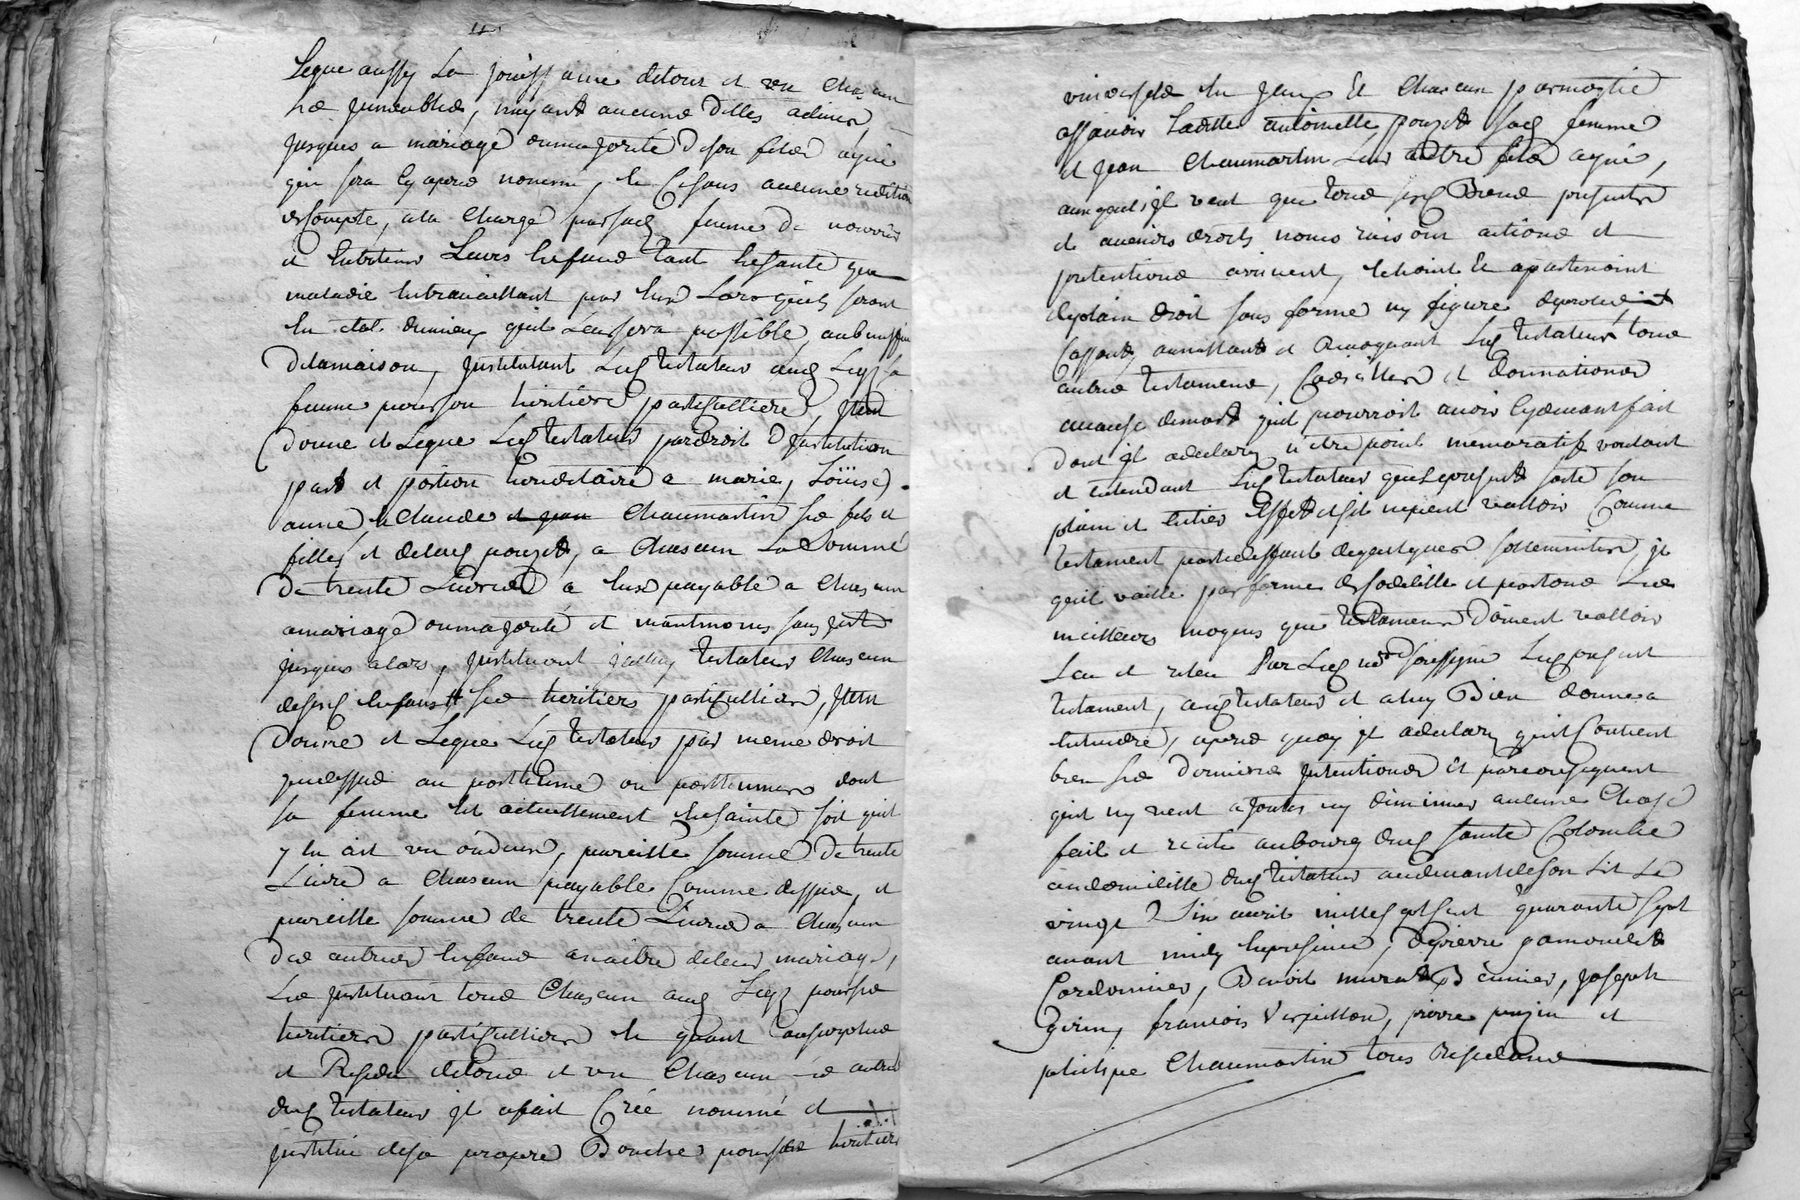 Legue aussy La jouissance de tous et un Chascun
ses jmmeubles, nuyant aucune delles
jusques a mariage ou majorité de son filts ayné
qui sera cy apres nommé, et Ce sans aucune redition
de Compte, a la Charge par sad femme de nourrir
et Entretenir Leurs Enfans tant En santé que
maladie En travaillant par Eux Lors quils seront
En etat du mieux quil Leur sera possible, au
de la maison, jnstituant Led testateur aud Legz sa
femme pour son heritiere particulliere, jtem
donne et Legue Led testateur par droit d'jnstitution
part et portion hereditaire a marie, Loüise,
anne et Claude et jean Chaumartin ses fils et
filles et de lad pouzet, a Chascun La Somme
de trente Livres a Eux payable a Chascun
a mariage ou majorité et maintmoins sans jnterets
jusques alors, jnstituant jcelluy testateur Chascun
de sesd Enfans ses heritiers particulliers, jtem
donne et Legue Led testateur par meme droit
que dessus au posthume ou posthumes dont
sa femme Est actuellement Enceinte soit quil
y En ait un ou deux, pareille somme de trente
Livre a Chascun payable Comme dessus, et
pareille somme de trente Livres a Chascun
des autres Enfans a naitre de leur mariage,
Les jnstituant tous Chascun aud Legz pour ses
heritiers particulliers Et quant au surplus
et Residu de tous et un Chascun les autres
dud testateur jl a fait Créé nommé et
jnstitué de sa propre Bouche pour ses heritiers
universels En jeux Et Chascun par moytié
assavoir Laditte antoinette pouzet sad femme
et jean Chaumartin Leur autre fils ayné,
auxquels jl veut que tous sesd Biens presents
et avenirs droits noms raisons actions et
pretentions arrivent, Echoint Et apartenoint
de plain droit sans forme ny figure de procedé
Cassant, annullant et Revoquant Led testateur tous
autres testaments, Codicilles et donnations
a cause de mort quil pourroit avoir cy devant fait
dont jl a declaré n'etre point memoratif voulant
et entendant Led testateur que Le present sorte son
plain et Entier Effet et sil ne peut valloir Comme
testament par deffaut de quelques sollemnites, jl
quil vaille par forme de Codicille et par tous Les
meilleurs moyens que testaments doivent valloir
Leu et releu Par Led nore soussigné Led present
testament, aud testateur et a luy Bien donné a
Entendre, apres quoy jl a declaré quil Contient
bien ses dernieres jntentions et par consequent
quil ny veut ajouter ny diminuer aucune Chose
fait et recité au bourg dud Sainte Colombe
au domicille dud testateur au devant de son Lit Le
vingt avril mille sept cent quarante sept
avant midy En presence, de pierre gamonet
Cordonnier, Benoit murat Benier, joseph
girin, francois Verpillon, pierre pinjin et
philipe Chaumartin tous Residants